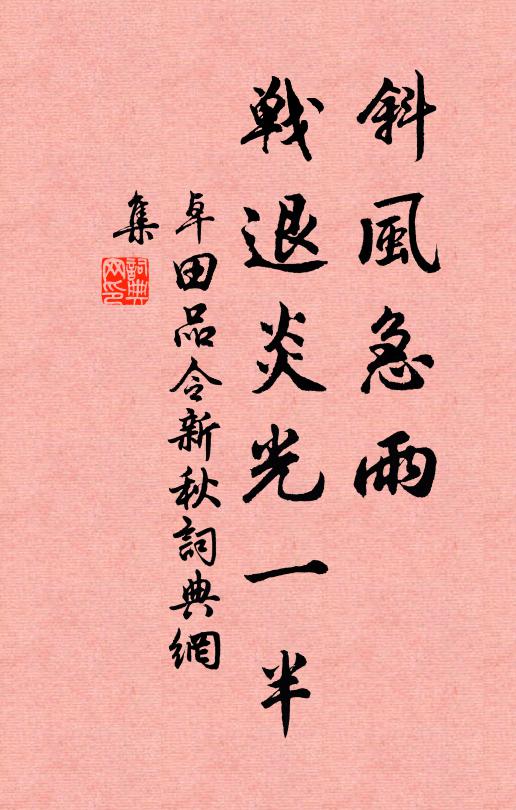 斜風急雨
戰退炎光一半
卓田品令新秋詞典網
集
詞典
网印